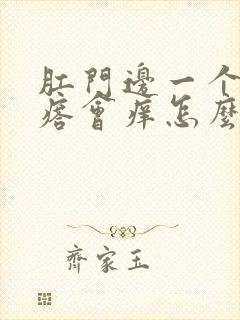 肛門邊一个
痞會痒怎麼
齊家玉